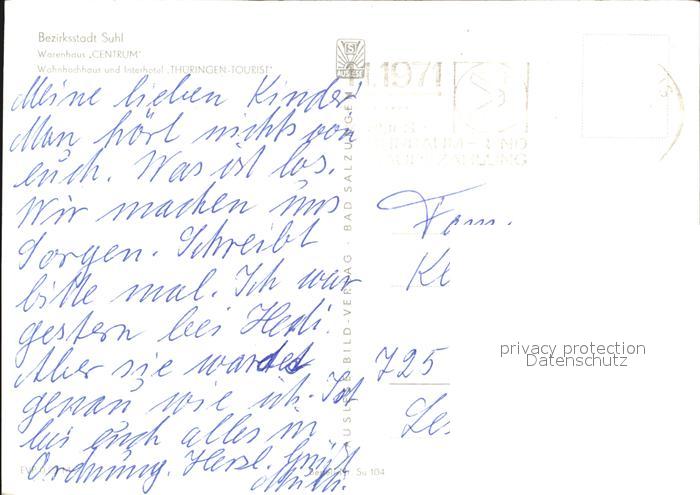 Bezirksstadt Suhl
Warenhaus „CENTRUM"
Wohnhochhaus und Interhotel „THÜRINGEN-TOURIST"
Meine lieben Kinder
Man hört nichts von
euch. Was ist los.
Wir machen uns
Sorgen. Schreibt
bitte mal. Ich war
gestern bei Hedi.
Aber sie wartet
genau wie ich. Ist
bei euch alles in
Ordnung. Herzl. Grüße
Mutti.
AUSLESE-BILD-VERLAG · BAD SALZUNGEN
AUSLESE
1.1.1971
UND
ZÄHLUNG
Fam.
Ke
725
Le
privacy protection
Datenschutz
Su 104